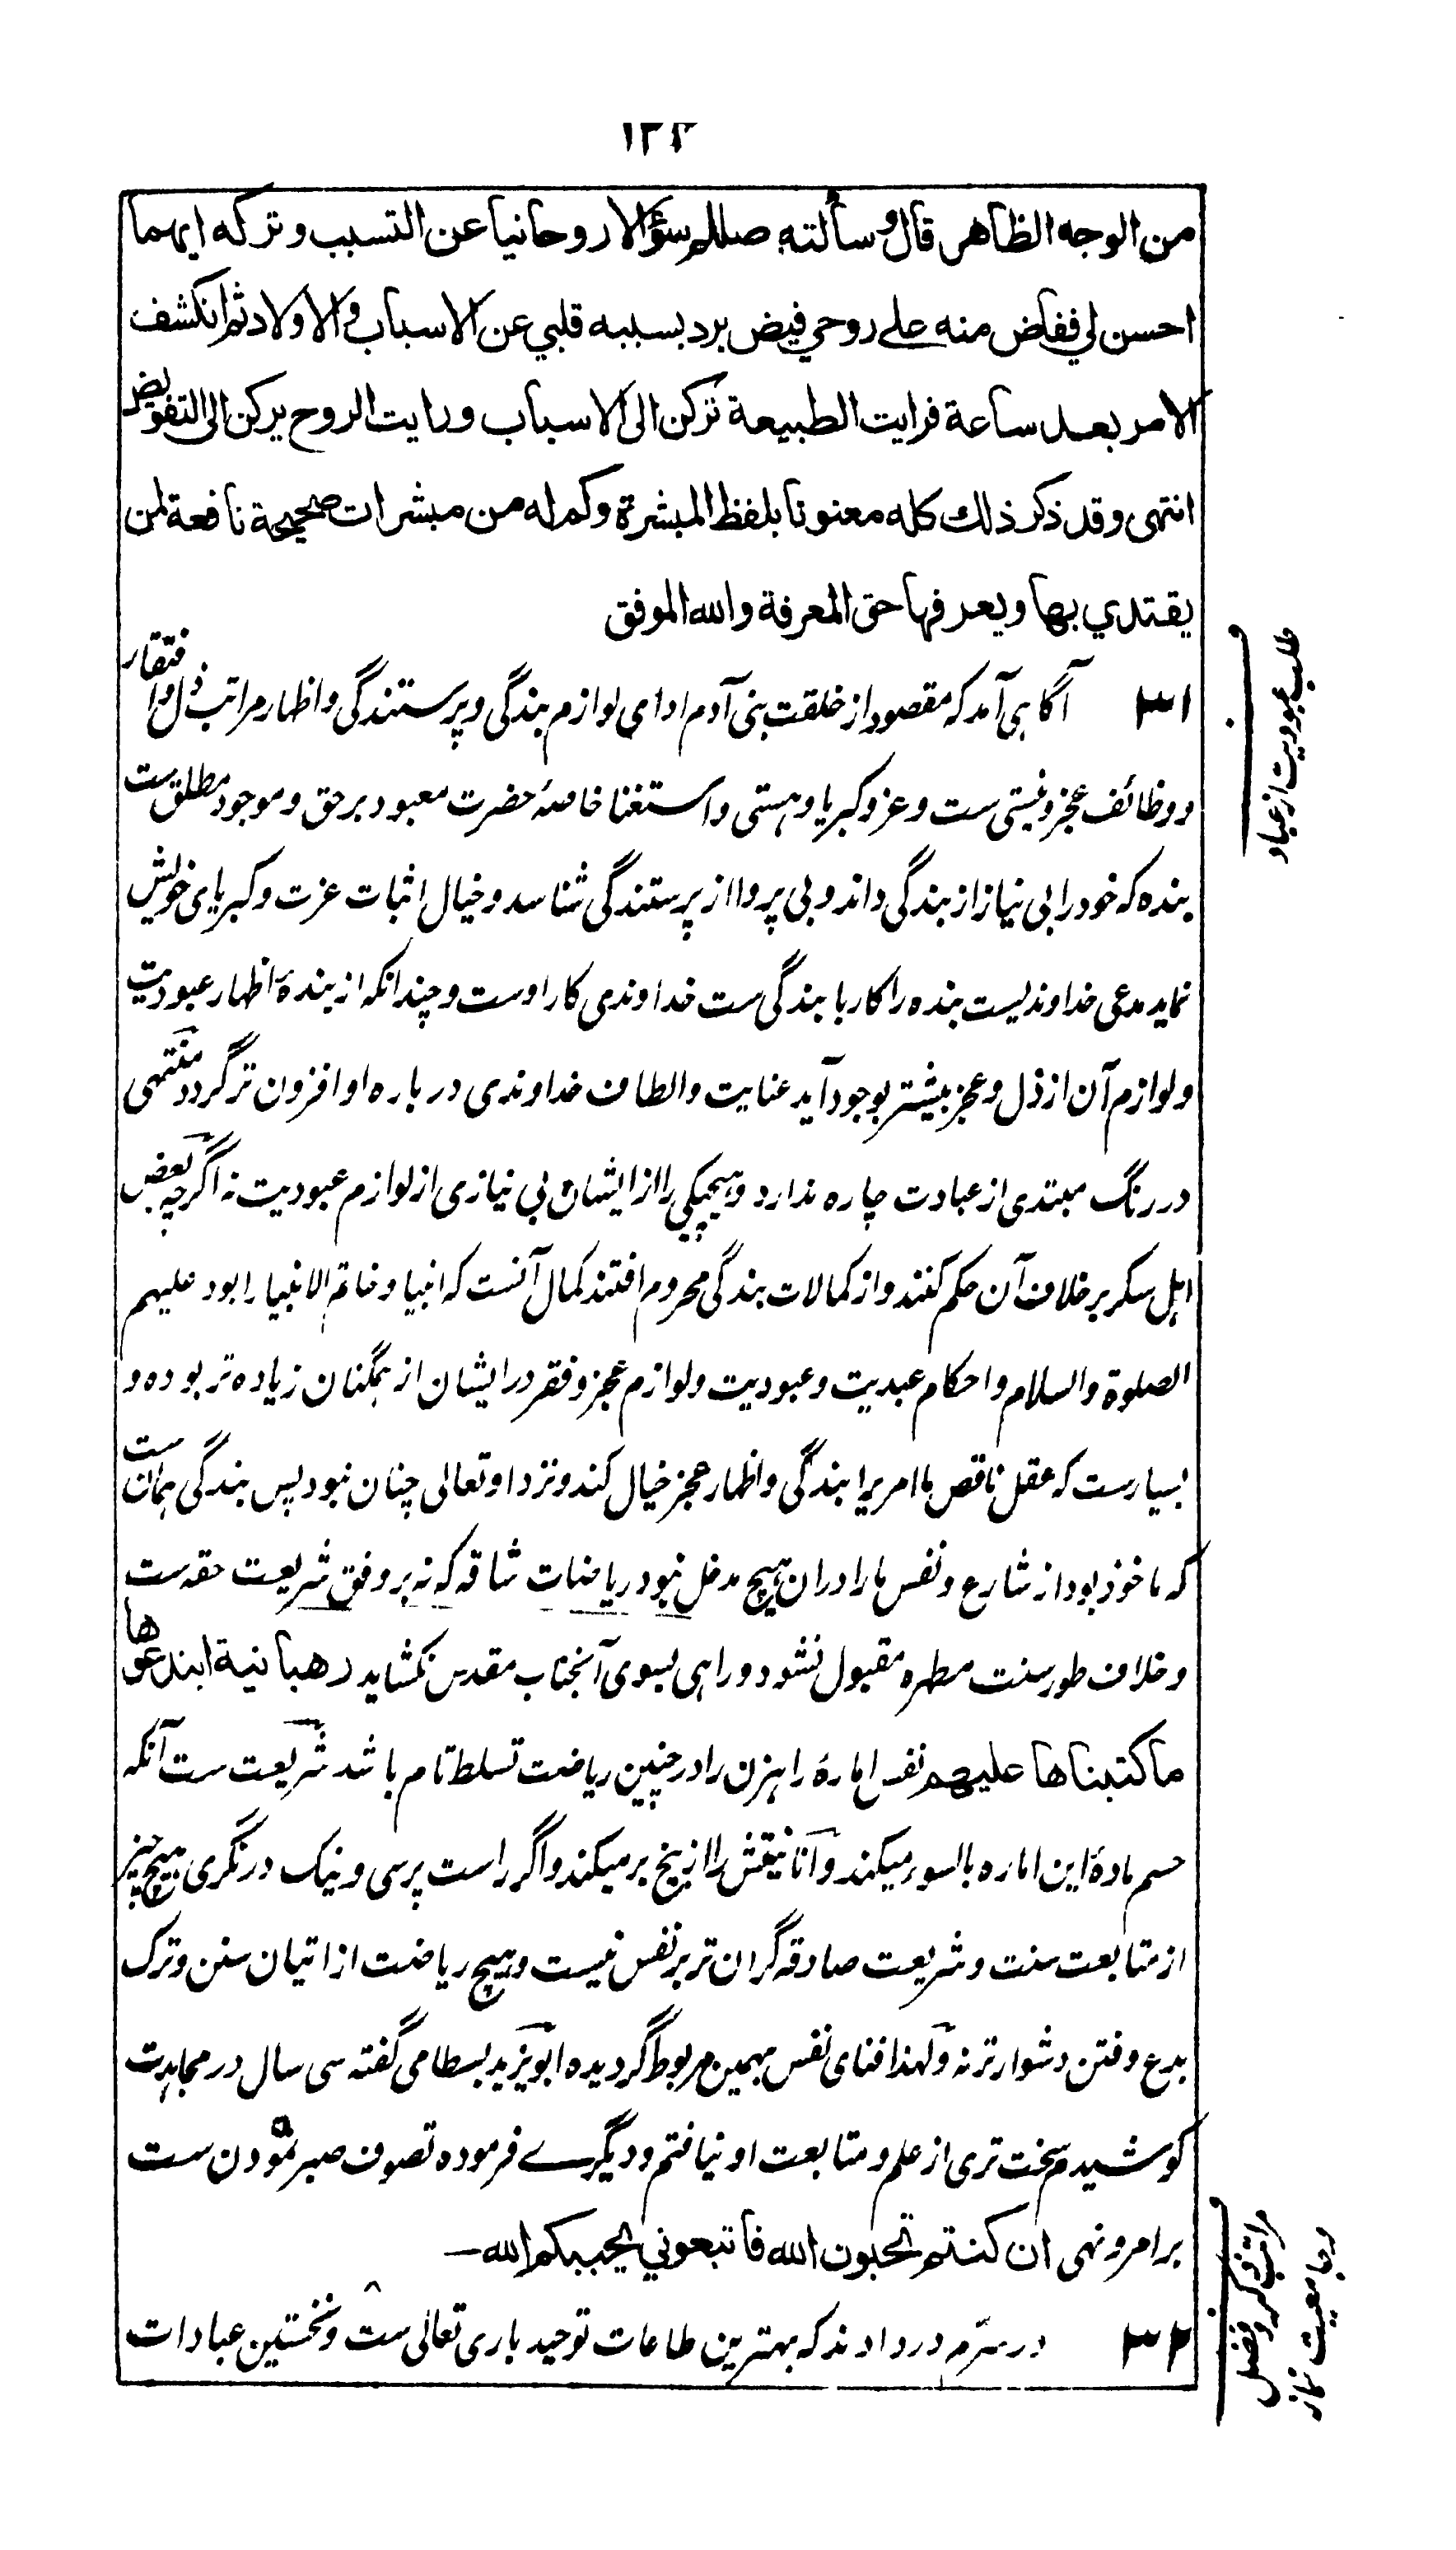 ۱۲۴
من الوجه الظاهر قال وسألته صللم سؤالا روحانيا عن التسبب وتركه ايهما
احسن لي ففاض منه على روحي فيض برد بسببه قلبي عن الاسباب والاولاد ثم انكشف
الامر بعد ساعة فرايت الطبيعة تركن الى الاسباب ورايت الروح يركن الى التفويض
انتهى وقد ذكر ذلك كله معنونا بلفظ المبشرة وكم له من مبشرات صحيحة نافعة لمن
يقتدي بها ويعرفها حق المعرفة والله الموفق
۳۱ آگاہی آمد که مقصود از خلقت بنی آدم ادای لوازم بندگی و پرستندگی و اظهار مراتب ذل وافتقار
و وظائف عجز و نیستی ست و عز و کبریا و هستی و استغنا خاصهٔ حضرت معبود برحق و موجود مطلق ست
بنده که خود را بی نیاز از بندگی داند و بی پروا از پرستندگی شناسد و خیال اثبات عزت و کبریای خویش
نماید مدعی خداوندیست بنده را کار با بندگی ست خداوندی کار اوست و چندانکه از بندهٔ اظهار عبودیت
و لوازم آن از ذل و عجز بیشتر بوجود آید عنایت و الطاف خداوندی درباره او افزون تر گردد منتهی
در رنگ مبتدی از عبادت چاره ندارد و هیچیکی را از ایشان بی نیازی از لوازم عبودیت نه اگرچه بعض
اہل سکر بر خلاف آن حکم کنند و از کمالات بندگی محروم افتند کمال آنست که انبیا و خاتم الانبیا را بود علیهم
الصلوة والسلام و احکام عبدیت و عبودیت و لوازم عجز و فقر در ایشان از همگنان زیاده تر بوده و
بسیارست که عقل ناقص ما امریرا بندگی و اظهار عجز خیال کند و نزد او تعالی چنان نبود پس بندگی ہمان ست
که ماخوذ بود از شارع و نفس ما را دران هیچ مدخل نبود ریاضات شاقه که نه بر وفق شریعت حقه ست
و خلاف طور سنت مطهره مقبول نشود و راہی بسوی آنجناب مقدس نکشاید رهبانية ابتدعوها
ما كتبناها عليهم نفس امارهٔ راهزن را در چنین ریاضت تسلط تام باشد شریعت ست آنکه
حسم مادهٔ این اماره بالسوء میکند و انانیتش را از بیخ بر میکند و اگر راست پرسی و نیک درنگری هیچ چیز
از متابعت سنت و شریعت صادقه گران تر بر نفس نیست و هیچ ریاضت از اتیان سنن و ترک
بدع و فتن دشوارتر نه ولهذا فنای نفس بهمین مربوط گردیده ابویزید بسطامی گفته سی سال در مجاہدت
کوشیدم سخت تری از علم و متابعت او نیافتم و دیگرے فرموده تصوف صبر نمودن ست
بر امر و نهی ان كنتم تحبون الله فاتبعوني يحببكم الله—
۳۲ در سرم در دادند که بهترین طاعات توحید باری تعالی ست و نخستین عبادات
طلب عبودیت از عباد
مراتب ذکر و فضل
نماز